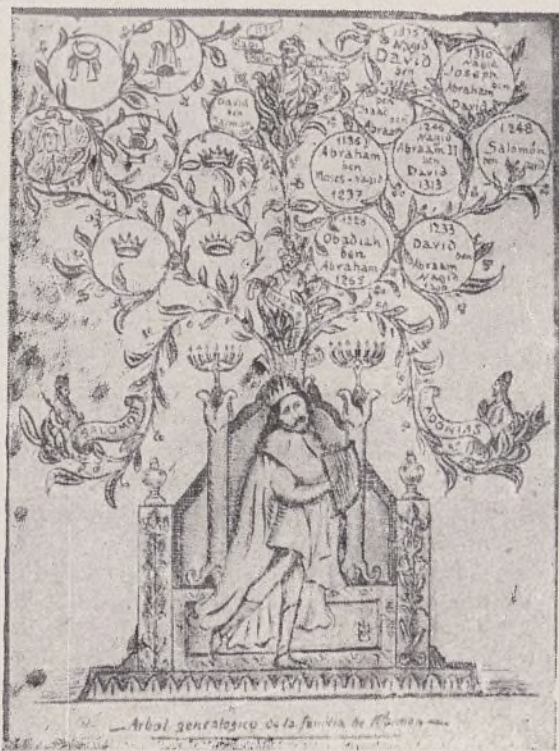 1335
Nagid
David
ben
1310
Nagid
Joseph
ben
Abraham
David
David
ben
Salomon
ben
Isaac
ben
Abraam
1186
Abraham
ben
Moses-nagid
1237
1246
Nagid
Abraam II
ben
David
1313
1248
Salomón
ben David
1228
Obadiah
ben
Abraham
1265
1233
David
ben
Abraam
Nagid
SALOMON
ADONIAS
Arbol genealogico de la familia de